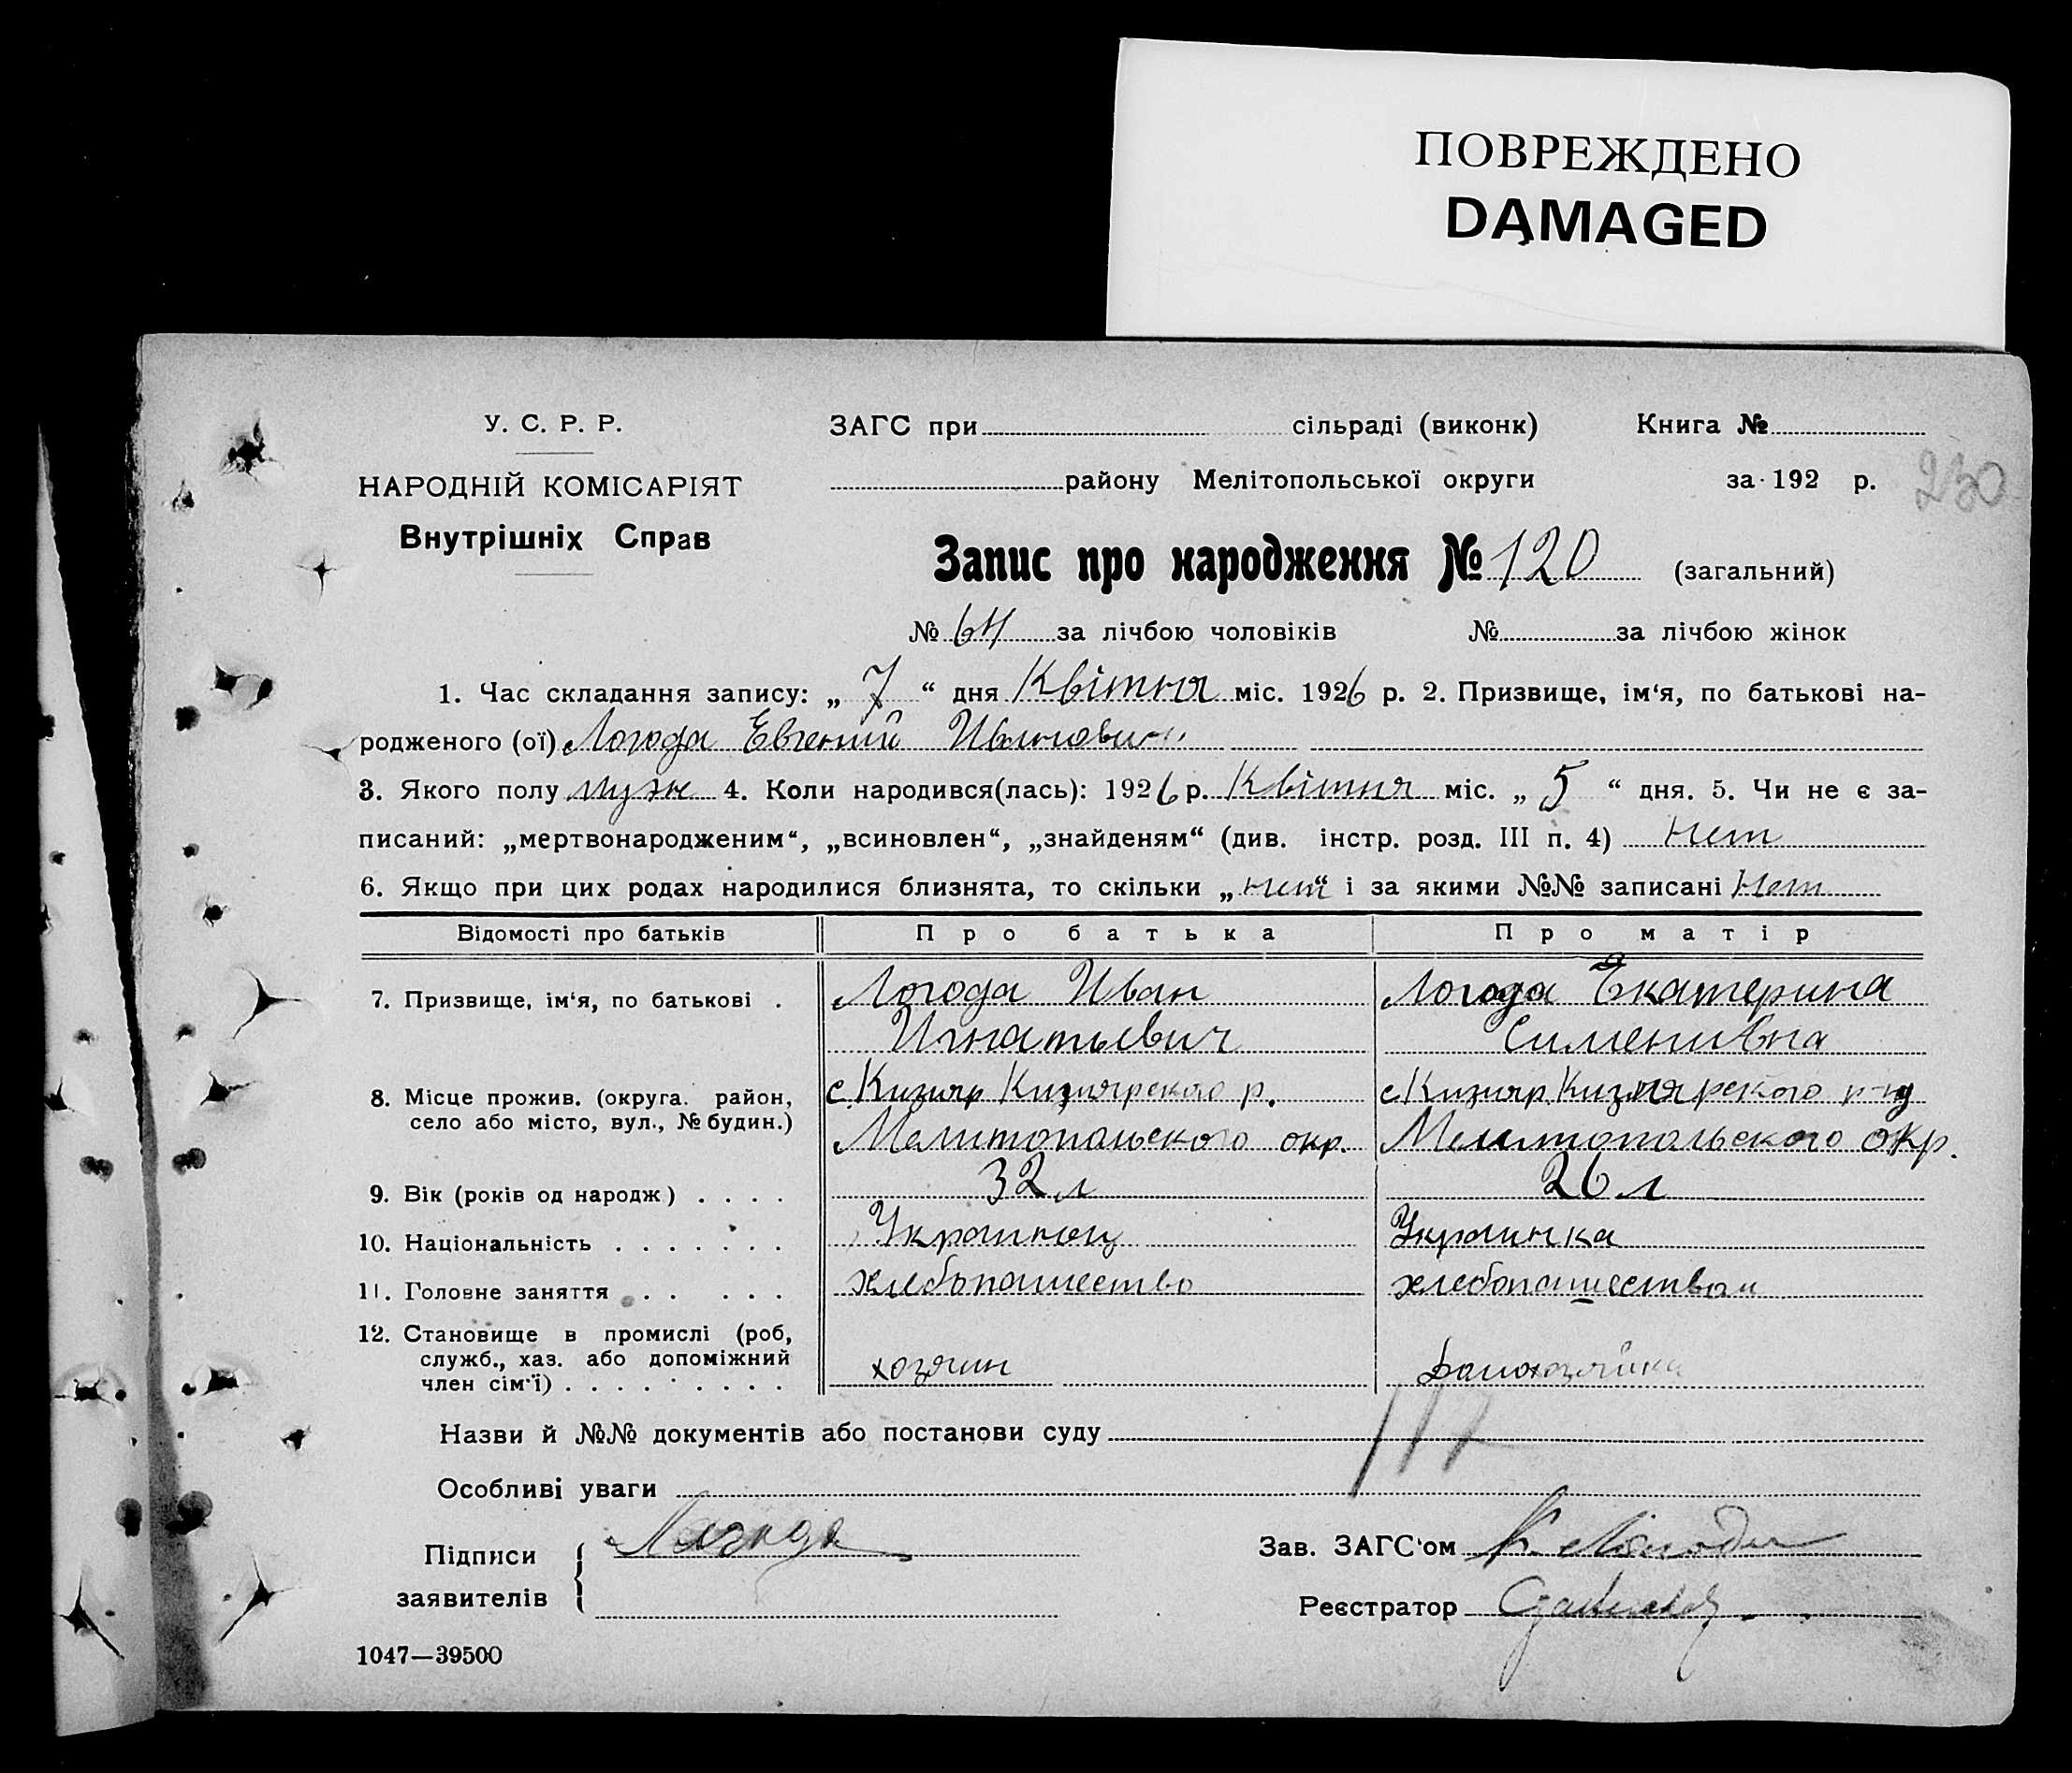 ПОВРЕЖДЕНО
DAMAGED
230
У. С. Р. Р.
НАРОДНІЙ КОМІСАРІЯТ
Внутрішніх Справ
ЗАГС при сільраді (виконк) Книга №
району Мелітопольської округи за 192 р.
Запис про народження № 120 (загальний)
№ 64 за лічбою чоловіків № за лічбою жінок
1. Час складання запису: „ 7 “ дня Квітня міс. 1926 р. 2. Призвище, ім‘я, по батькові на-
родженого (ої) Логода Евгений Иванович
3. Якого полу муж 4. Коли народився(лась): 1926 р. Квітня міс. „ 5 “ дня. 5. Чи не є за-
писаний: „мертвонародженим“, „всиновлен“, „знайденям“ (див. інстр. розд. III п. 4) нет
6. Якщо при цих родах народилися близнята, то скільки „ нет “ і за якими №№ записані нет
Відомості про батьків Про батька Про матір
7. Призвище, ім‘я, по батькові . Логода Иван Логода Екатерина
Игнатьевич Сименивна
8. Місце прожив. (округа. район, с. Кизияр Кизиярского р. с. Кизияр Кизиярского р-на
село або місто, вул., № будин.) Мелитопольского окр. Мелитопольского окр.
9. Вік (років од народж) . . . . 32 л 26 л
10. Національність . . . . . . . Украинец Украинка
11. Головне заняття . . . . . . хлебопашество хлебопашеством
12. Становище в промислі (роб,
служб., хаз. або допоміжний хозяин домохозяйка
член сім‘ї) . . . . . . . . .
Назви й №№ документів або постанови суду
117
Особливі уваги
Підписи Логода Зав. ЗАГС‘ом
заявителів Реєстратор
1047—39500